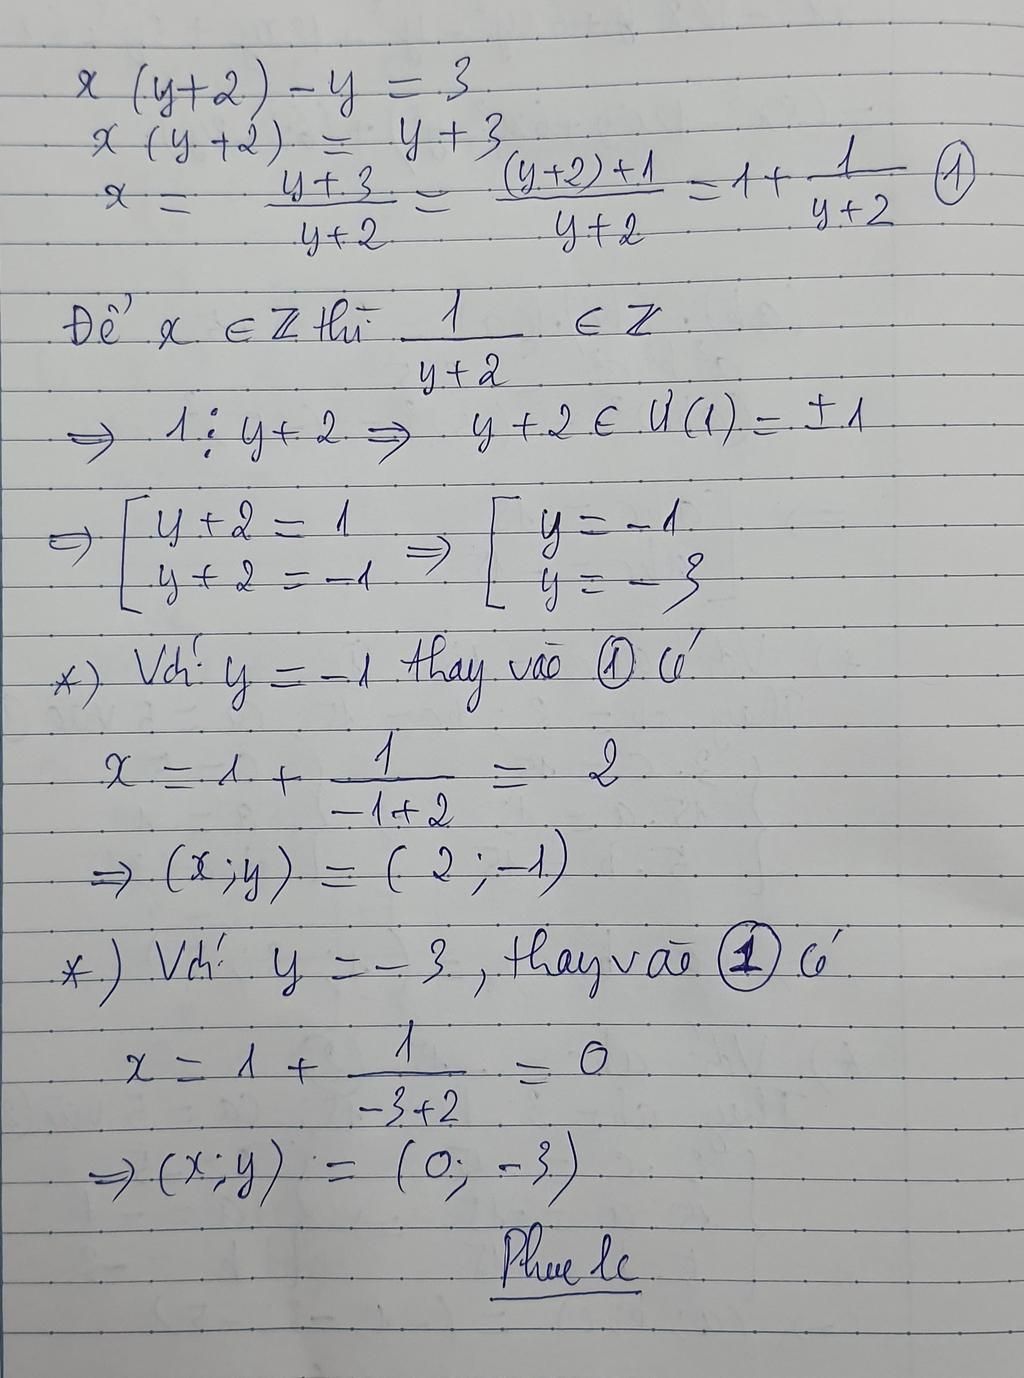 x (y+2) - y = 3
x (y+2) = y + 3
x = \frac{y+3}{y+2} = \frac{(y+2)+1}{y+2} = 1 + \frac{1}{y+2} ①
Để x ∈ Z thì \frac{1}{y+2} ∈ Z
⇒ 1 ⋮ y+2 ⇒ y+2 ∈ Ư(1) = ±1
⇒ [ y+2 = 1 ⇒ [ y = -1
y+2 = -1 y = -3
*) Với y = -1 thay vào ① có
x = 1 + \frac{1}{-1+2} = 2
⇒ (x;y) = (2;-1)
*) Với y = -3, thay vào ① có
x = 1 + \frac{1}{-3+2} = 0
⇒ (x;y) = (0; -3)